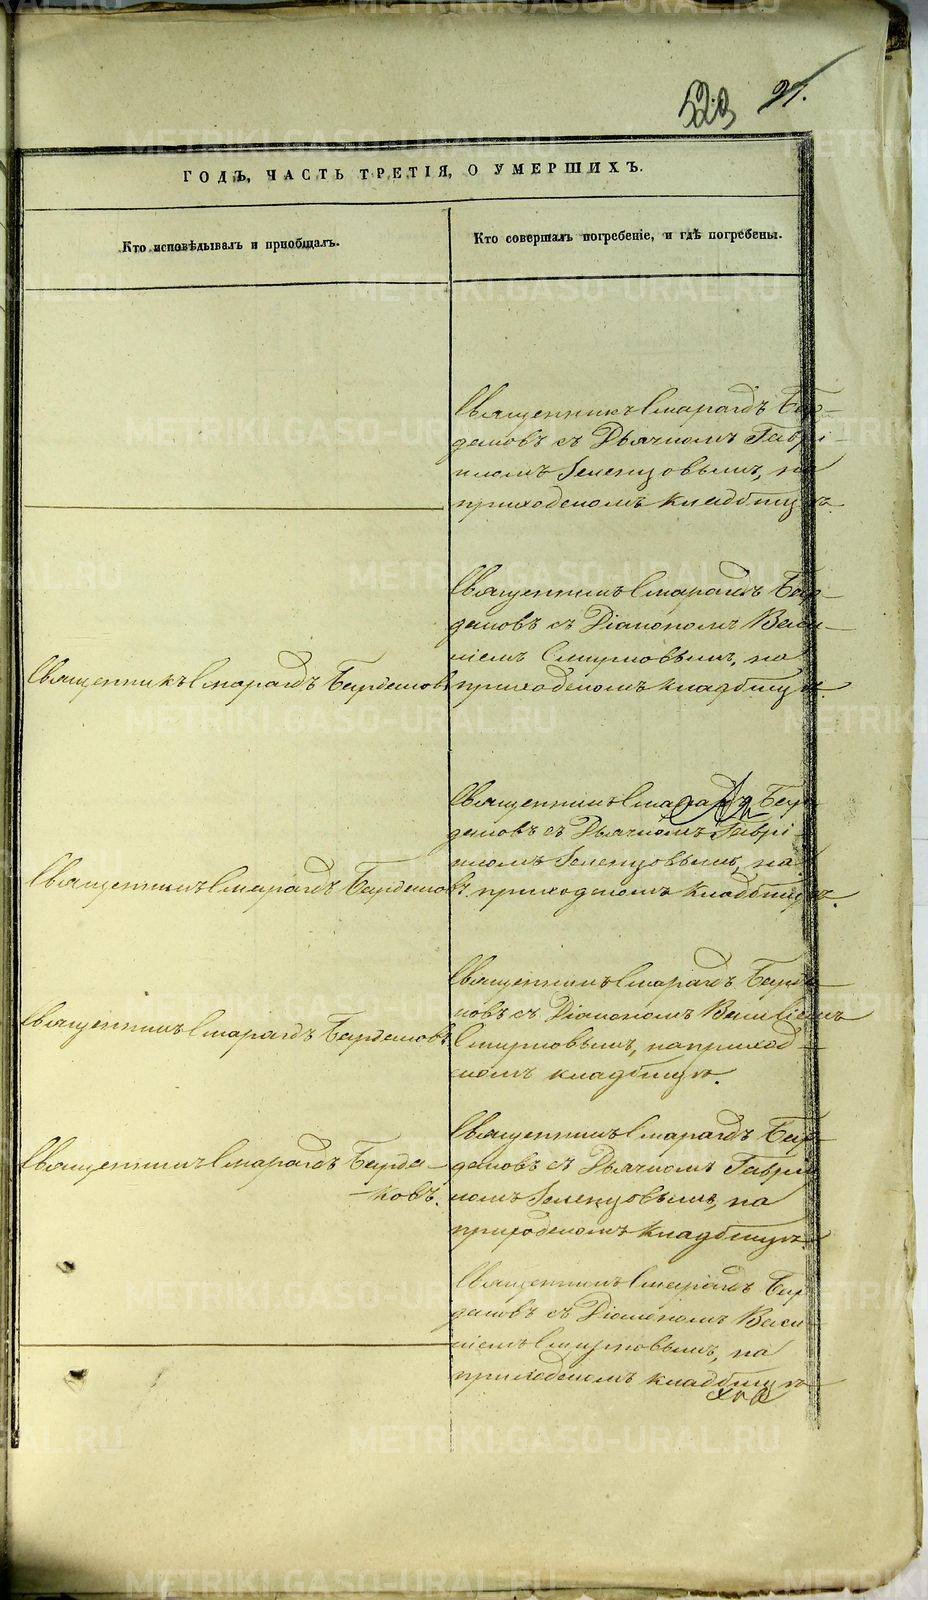 529 91.
ГОДЪ, ЧАСТЬ ТРЕТІЯ, О УМЕРШИХЪ.
Кто исповѣдывалъ и пріобщалъ.
Кто совершалъ погребеніе, и гдѣ погребены.
Священникъ Смарагдъ Бар-
даковъ съ Дьячкомъ Гаврі-
иломъ Зеленцовымъ, на
приходскомъ кладбищѣ.
Священникъ Смарагдъ Бардаковъ
Священникъ Смарагдъ Бар-
даковъ съ Діакономъ Васи-
ліемъ Смирновымъ, на
приходскомъ кладбищѣ.
Священникъ Смарагдъ Бардаковъ.
Священникъ Смарагдъ Бар-
даковъ съ Дьячкомъ Гаврі-
иломъ Зеленцовымъ, на
приходскомъ кладбищѣ.
Священникъ Смарагдъ Бардаковъ
Священникъ Смарагдъ Барда-
ковъ съ Діакономъ Василіемъ
Смирновымъ, на приход-
скомъ кладбищѣ.
Священникъ Смарагдъ Барда-
-ковъ.
Священникъ Смарагдъ Бар-
даковъ съ Дьячкомъ Гаврі-
иломъ Зеленцовымъ, на
приходскомъ кладбищѣ.
Священникъ Смарагдъ Бар-
даковъ съ Діакономъ Васи-
ліемъ Смирновымъ, на
приходскомъ кладбищѣ
METRIKI.GASO-URAL.RU